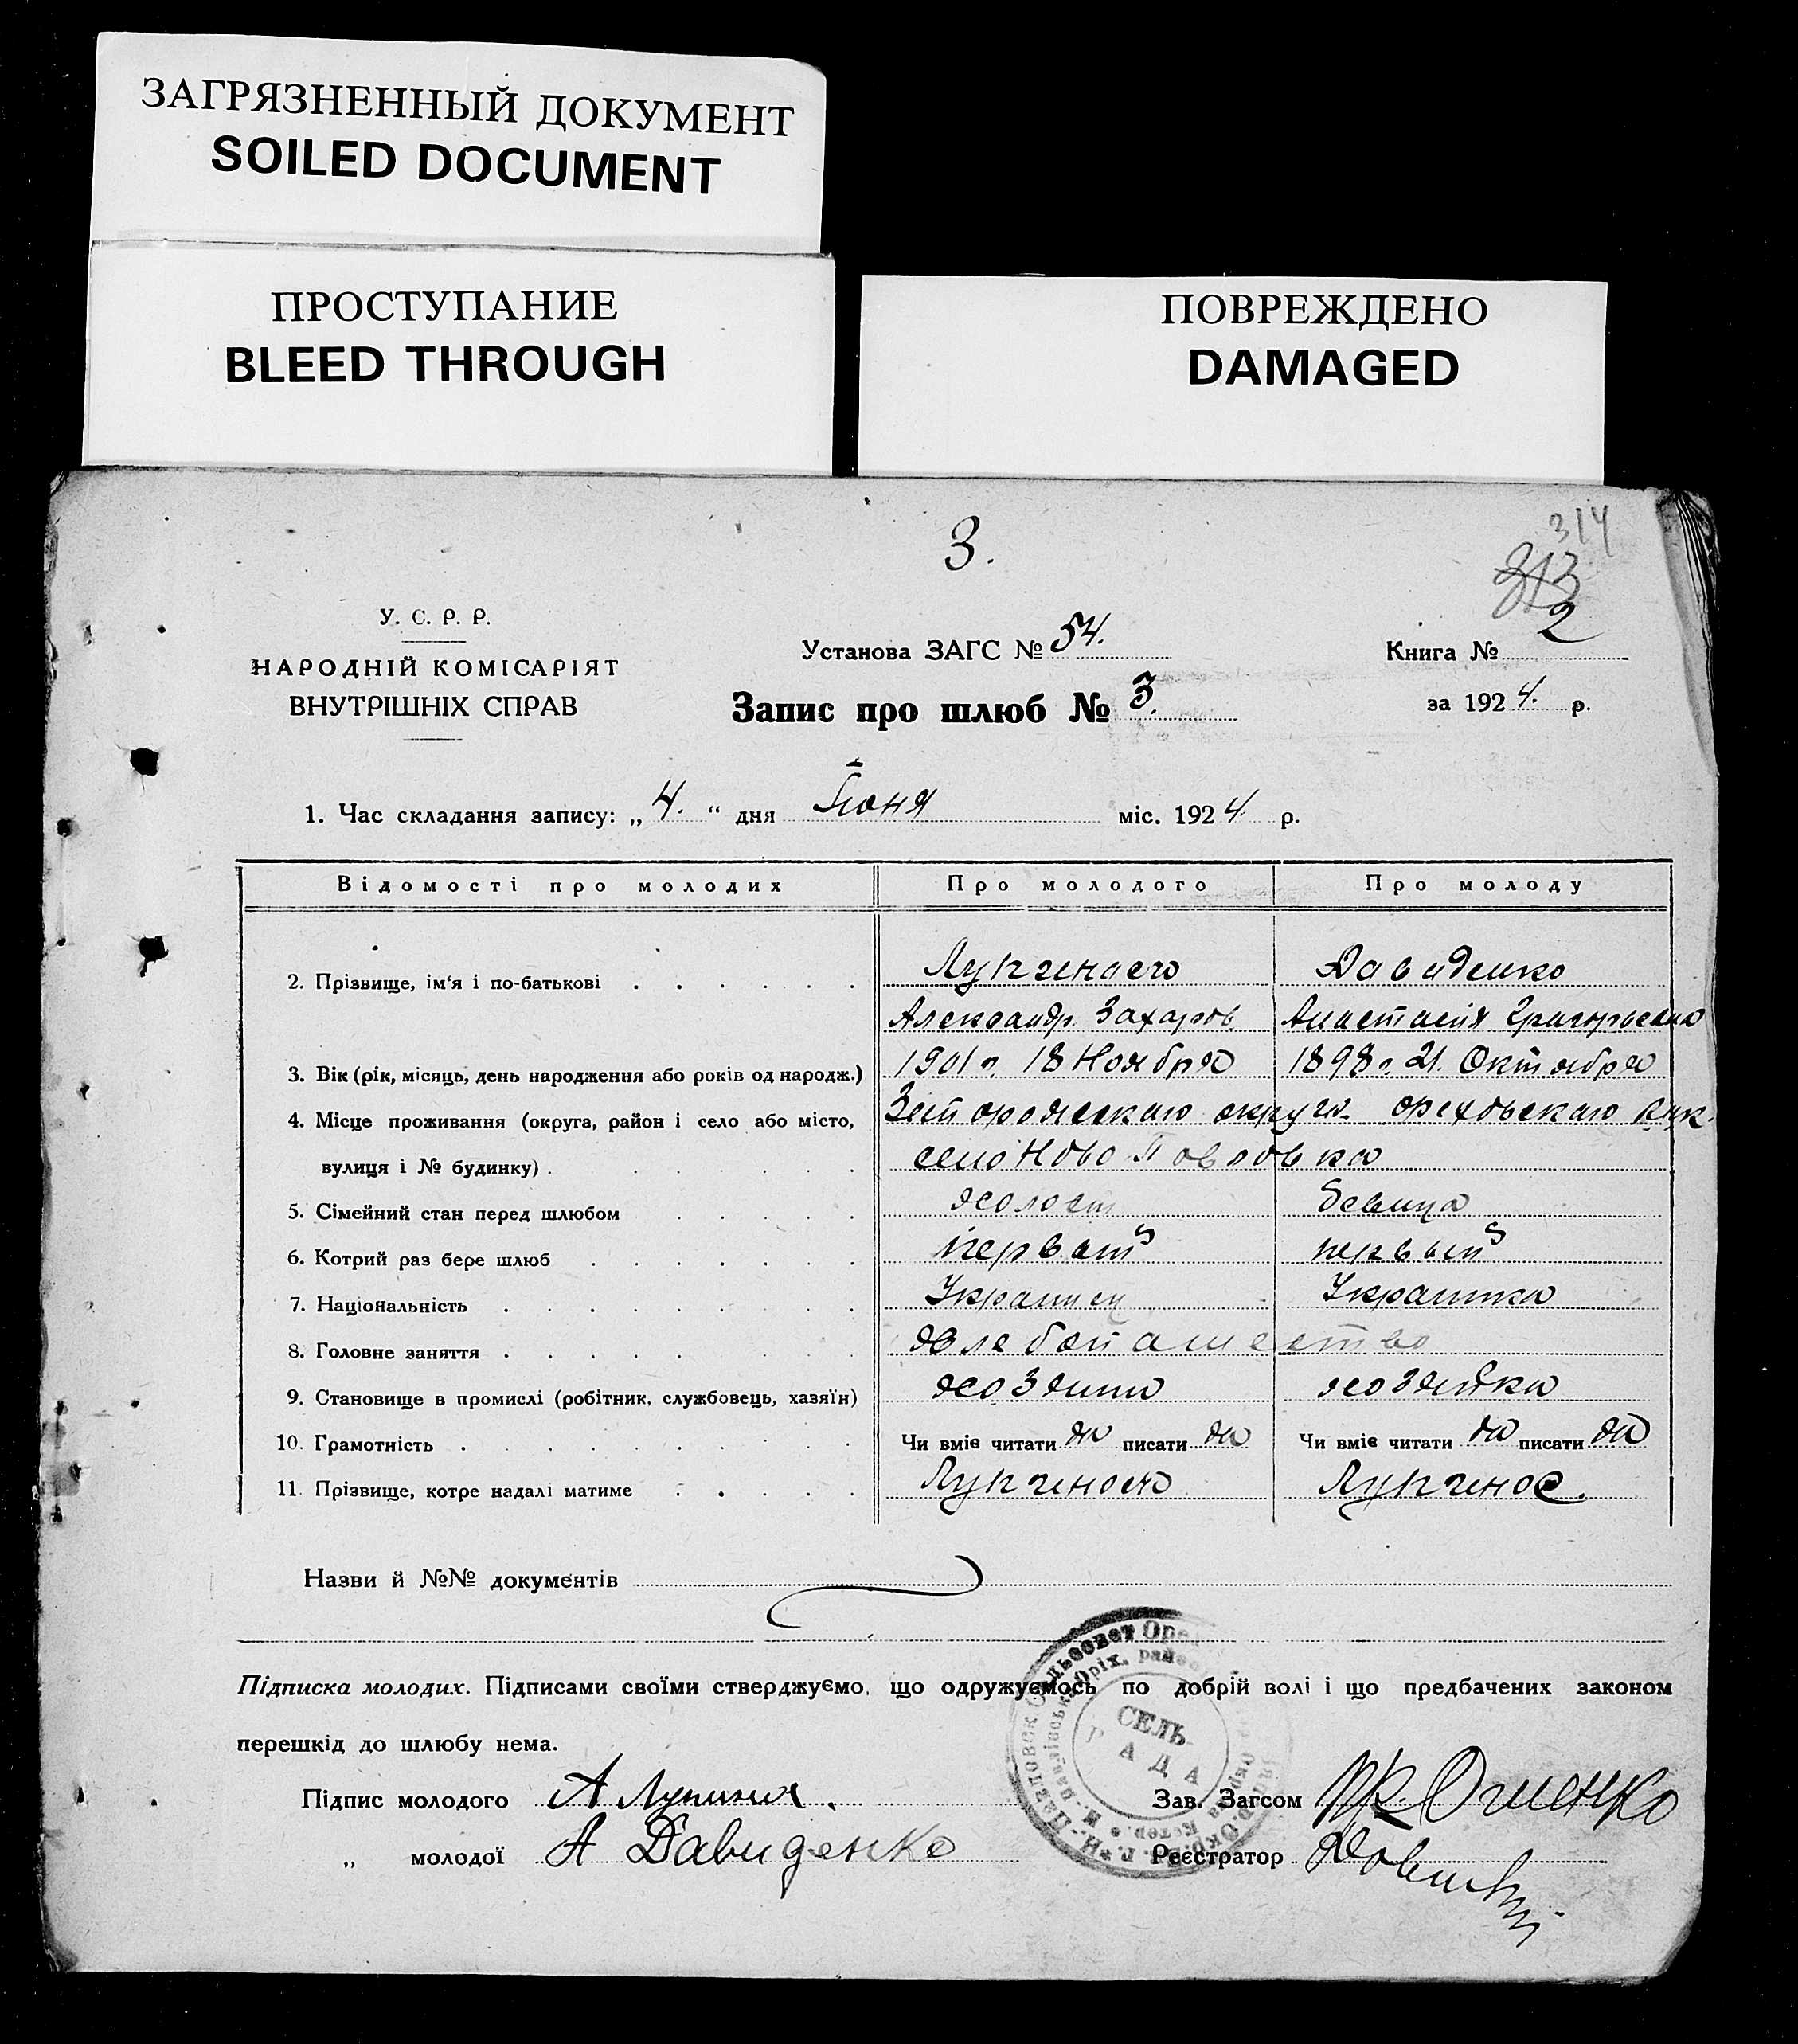 ЗАГРЯЗНЕННЫЙ ДОКУМЕНТ
SOILED DOCUMENT
ПРОСТУПАНИЕ
BLEED THROUGH
ПОВРЕЖДЕНО
DAMAGED
3.
314
313
У. С. Р. Р.
НАРОДНІЙ КОМІСАРІЯТ
ВНУТРІШНІХ СПРАВ
Установа ЗАГС № 54.
Книга № 2
Запис про шлюб № 3.
за 1924. р.
1. Час складання запису: „4." дня Іюня міс. 1924. р.
Відомості про молодих Про молодого Про молоду
2. Прізвище, ім'я і по-батькові Давиденко
Александр Захаров Анастасія Григорьевна
3. Вік (рік, місяць, день народження або років од народж.) 1901 г. 18 Ноября 1898 г. 21. Октября
4. Місце проживання (округа, район і село або місто, округи ореховскаго
вулиця і № будинку) село Ново Павловка
5. Сімейний стан перед шлюбом холост девица
6. Котрий раз бере шлюб
7. Національність Украинец Украинка
8. Головне заняття хлебопашество
9. Становище в промислі (робітник, службовець, хазяїн) хозяин хозяйка
10. Грамотність Чи вміє читати да писати да Чи вміє читати да писати да
11. Прізвище, котре надалі матиме
Назви й №№ документів
Підписка молодих. Підписами своїми стверджуємо, що одружуємось по добрій волі і що предбачених законом
перешкід до шлюбу нема.
СЕЛЬ-
РАДА
Підпис молодого А
Зав. Загсом
„ молодої А Давиденко
Реєстратор